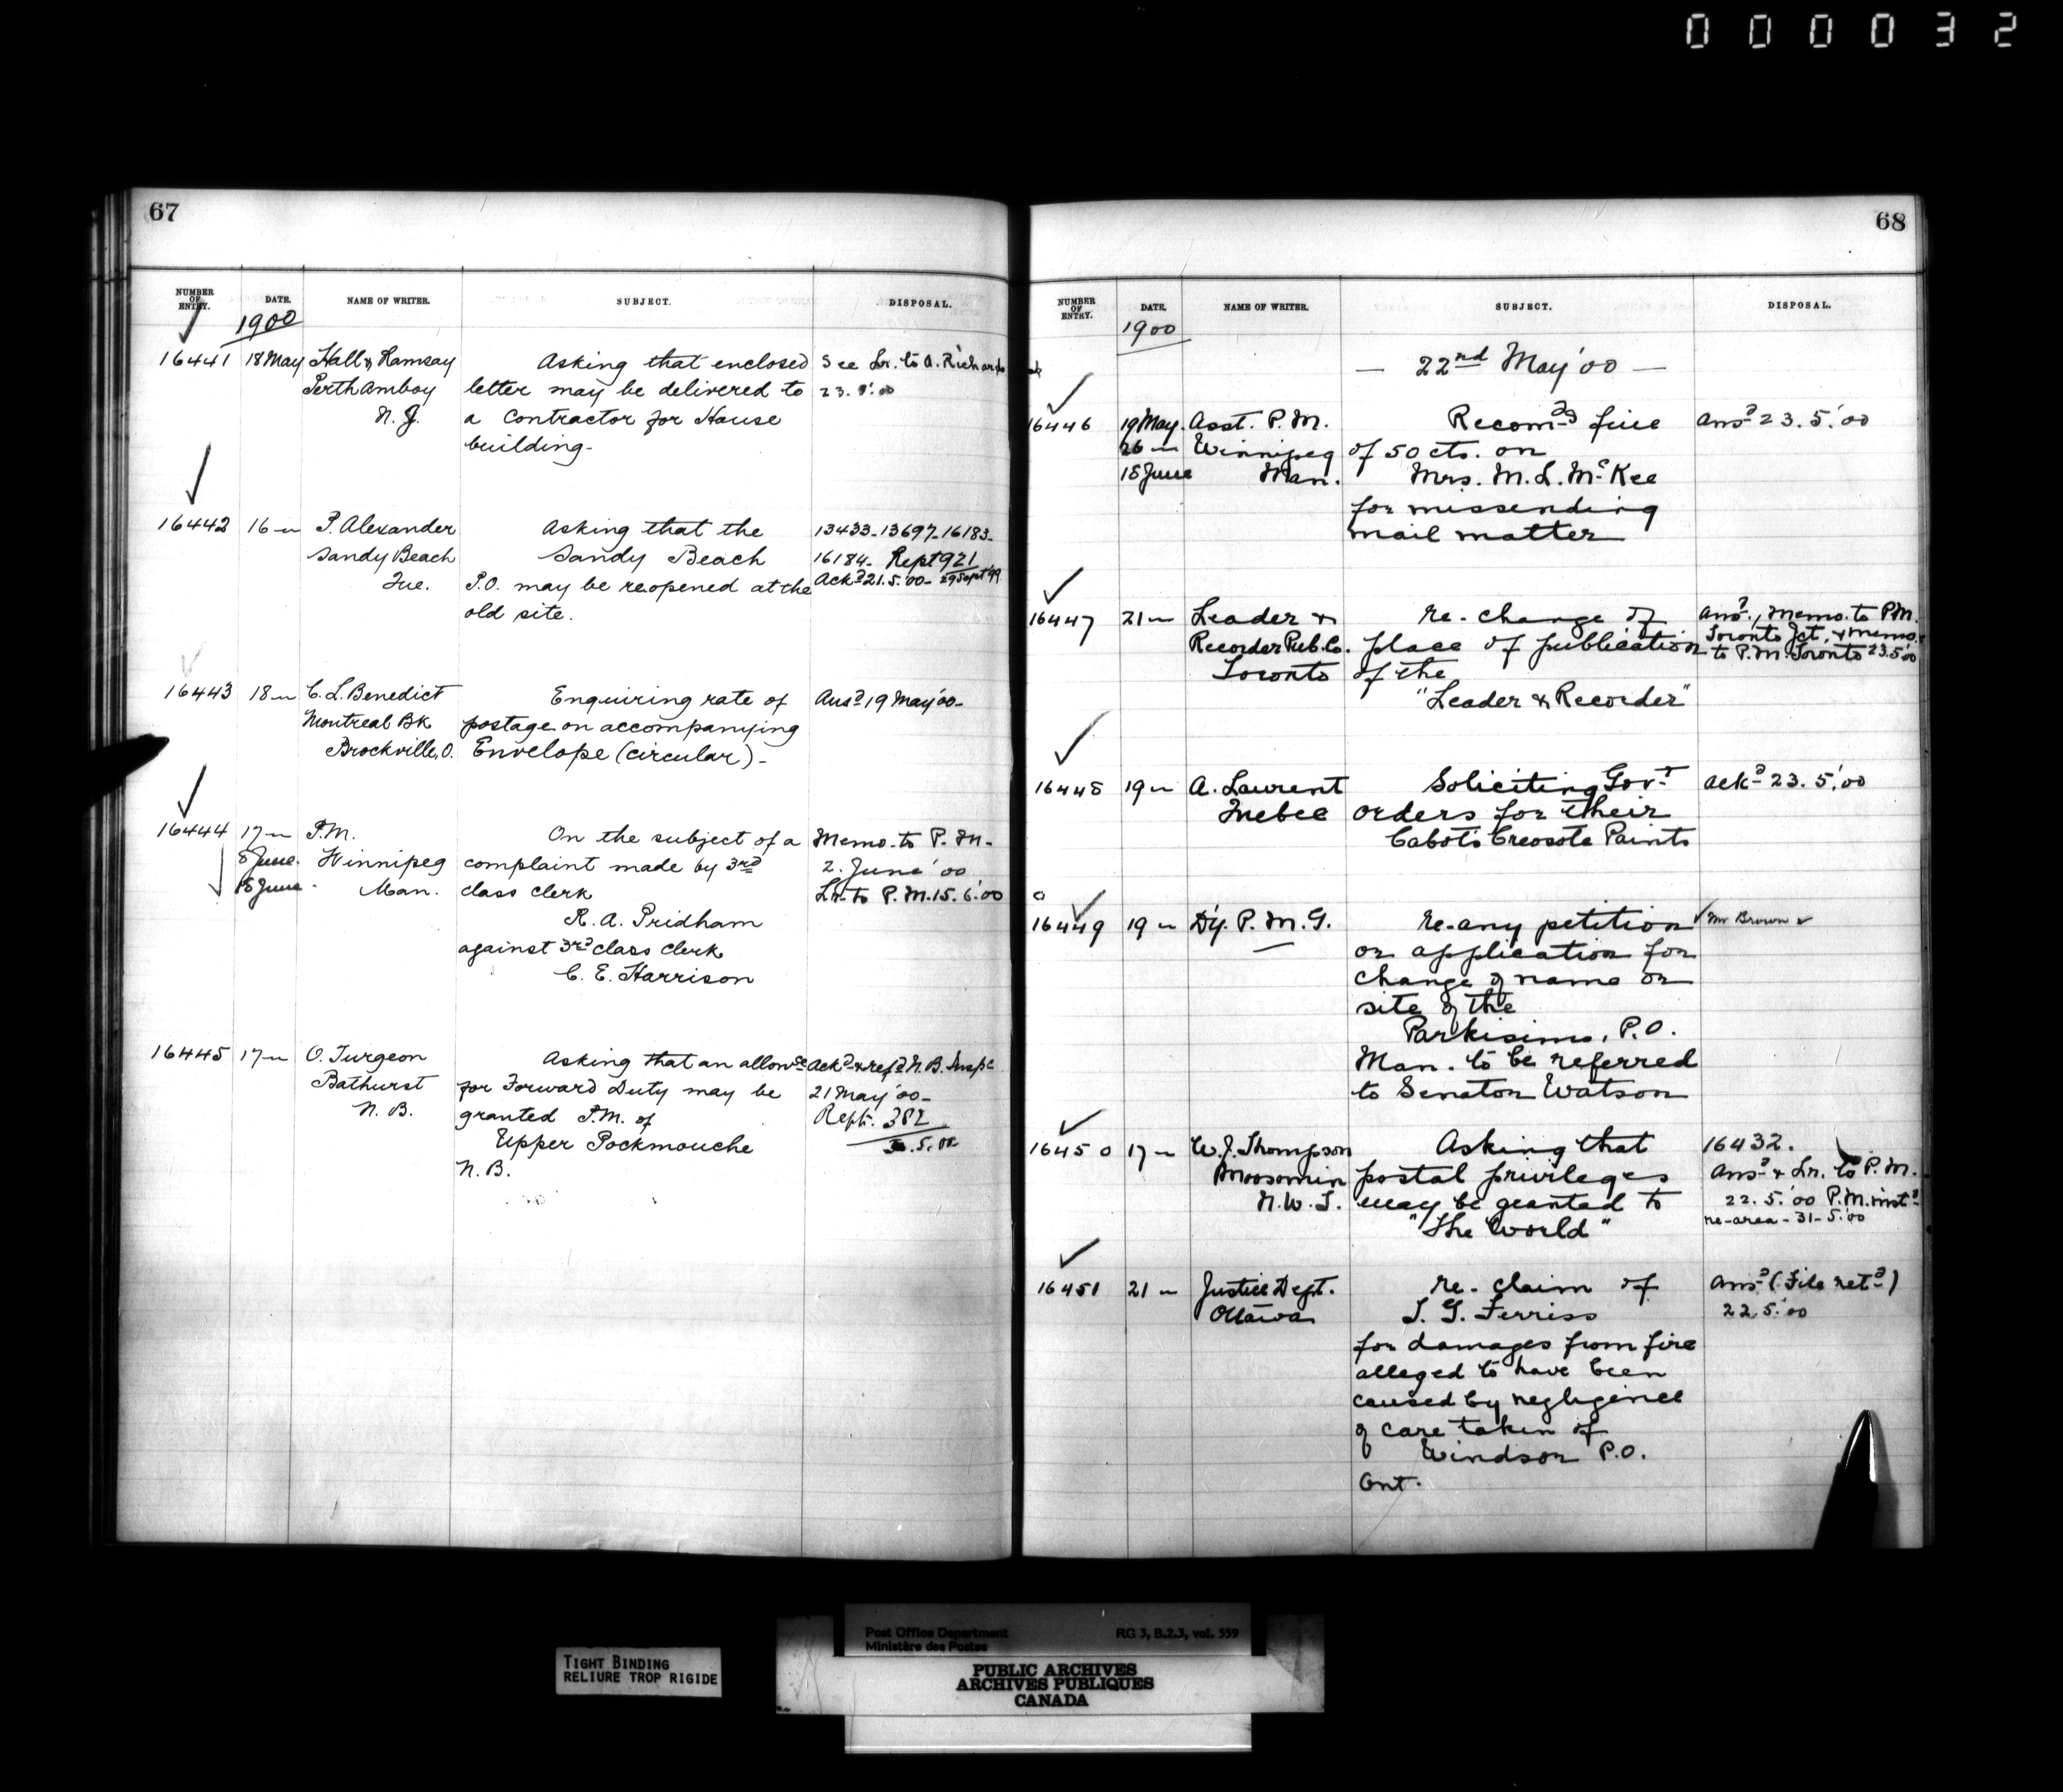 000032
67
NUMBER OF ENTRY. DATE. NAME OF WRITER. SUBJECT. DISPOSAL.
1900
16441 18 May Hall & Ramsay Asking that enclosed See Lr. to A. Richards
Perth Amboy letter may be delivered to 23.5.'00
N. J. a Contractor for House
building-
16442 16 " P. Alexander Asking that the 13433-13697-16183-
Sandy Beach Sandy Beach 16184- Rept 921
Que. P.O. may be reopened at the Ackd 21.5.'00- 29 Sept '99
old site.
16443 18 " C. L. Benedict Enquiring rate of Ansd 19 May '00-
Montreal Bk postage on accompanying
Brockville, O. Envelope (circular)-
16444 17 " P.M. On the subject of a Memo. to P. M.
8 June. Winnipeg complaint made by 3rd 2. June '00
15 June. Man. class clerk Lr. to P. M. 15.6.'00
R. A. Pridham
against 3rd class clerk
C. E. Harrison
16445 17 " O. Turgeon Asking that an allowce Ackd & refd N. B. Inspr
Bathurst for Forward Duty may be 21 May '00-
N. B. granted P.M. of Rept. 382
Upper Pockmouche .5.00
N. B.
68
NUMBER OF ENTRY. DATE. NAME OF WRITER. SUBJECT. DISPOSAL.
1900
— 22nd May '00 —
16446 19 May. Asst. P. M. Recomdg fine Ansd 23.5.'00
26 " Winnipeg of 50 cts. on
15 June Man. Mrs. M. L. McKee
for missending
mail matter
16447 21 " Leader & re-change of Ansd, Memo. to P.M.
Recorder Pub. Co. place of publication Toronto Jct. & memo.
Toronto of the to P.M. Toronto 23.5.'00
"Leader & Recorder"
16448 19 " A. Laurent Soliciting Govt Ackd 23.5.'00
Quebec orders for their
Cabot's Creosote Paints
16449 19 " Dy. P. M. G. re-any petition Mr Brown
or application for
change of name or
site of the
Parkisimo, P.O.
Man. to be referred
to Senator Watson
16450 17 " W. J. Thompson Asking that 16432.
Moosomin postal privileges Ansd & Lr. to P. M.
N. W. T. may be granted to 22.5.'00 P.M. instd
"The World" re-area-31-5.'00
16451 21 " Justice Dept. re-claim of Ansd (File retd)
Ottawa T. G. Ferriss 22.5.'00
for damages from fire
alleged to have been
caused by negligence
of care taken of
Windsor P.O.
Ont.
TIGHT BINDING
RELIURE TROP RIGIDE
Post Office Department RG 3, B.2.3, vol. 559
Ministère des Postes
PUBLIC ARCHIVES
ARCHIVES PUBLIQUES
CANADA